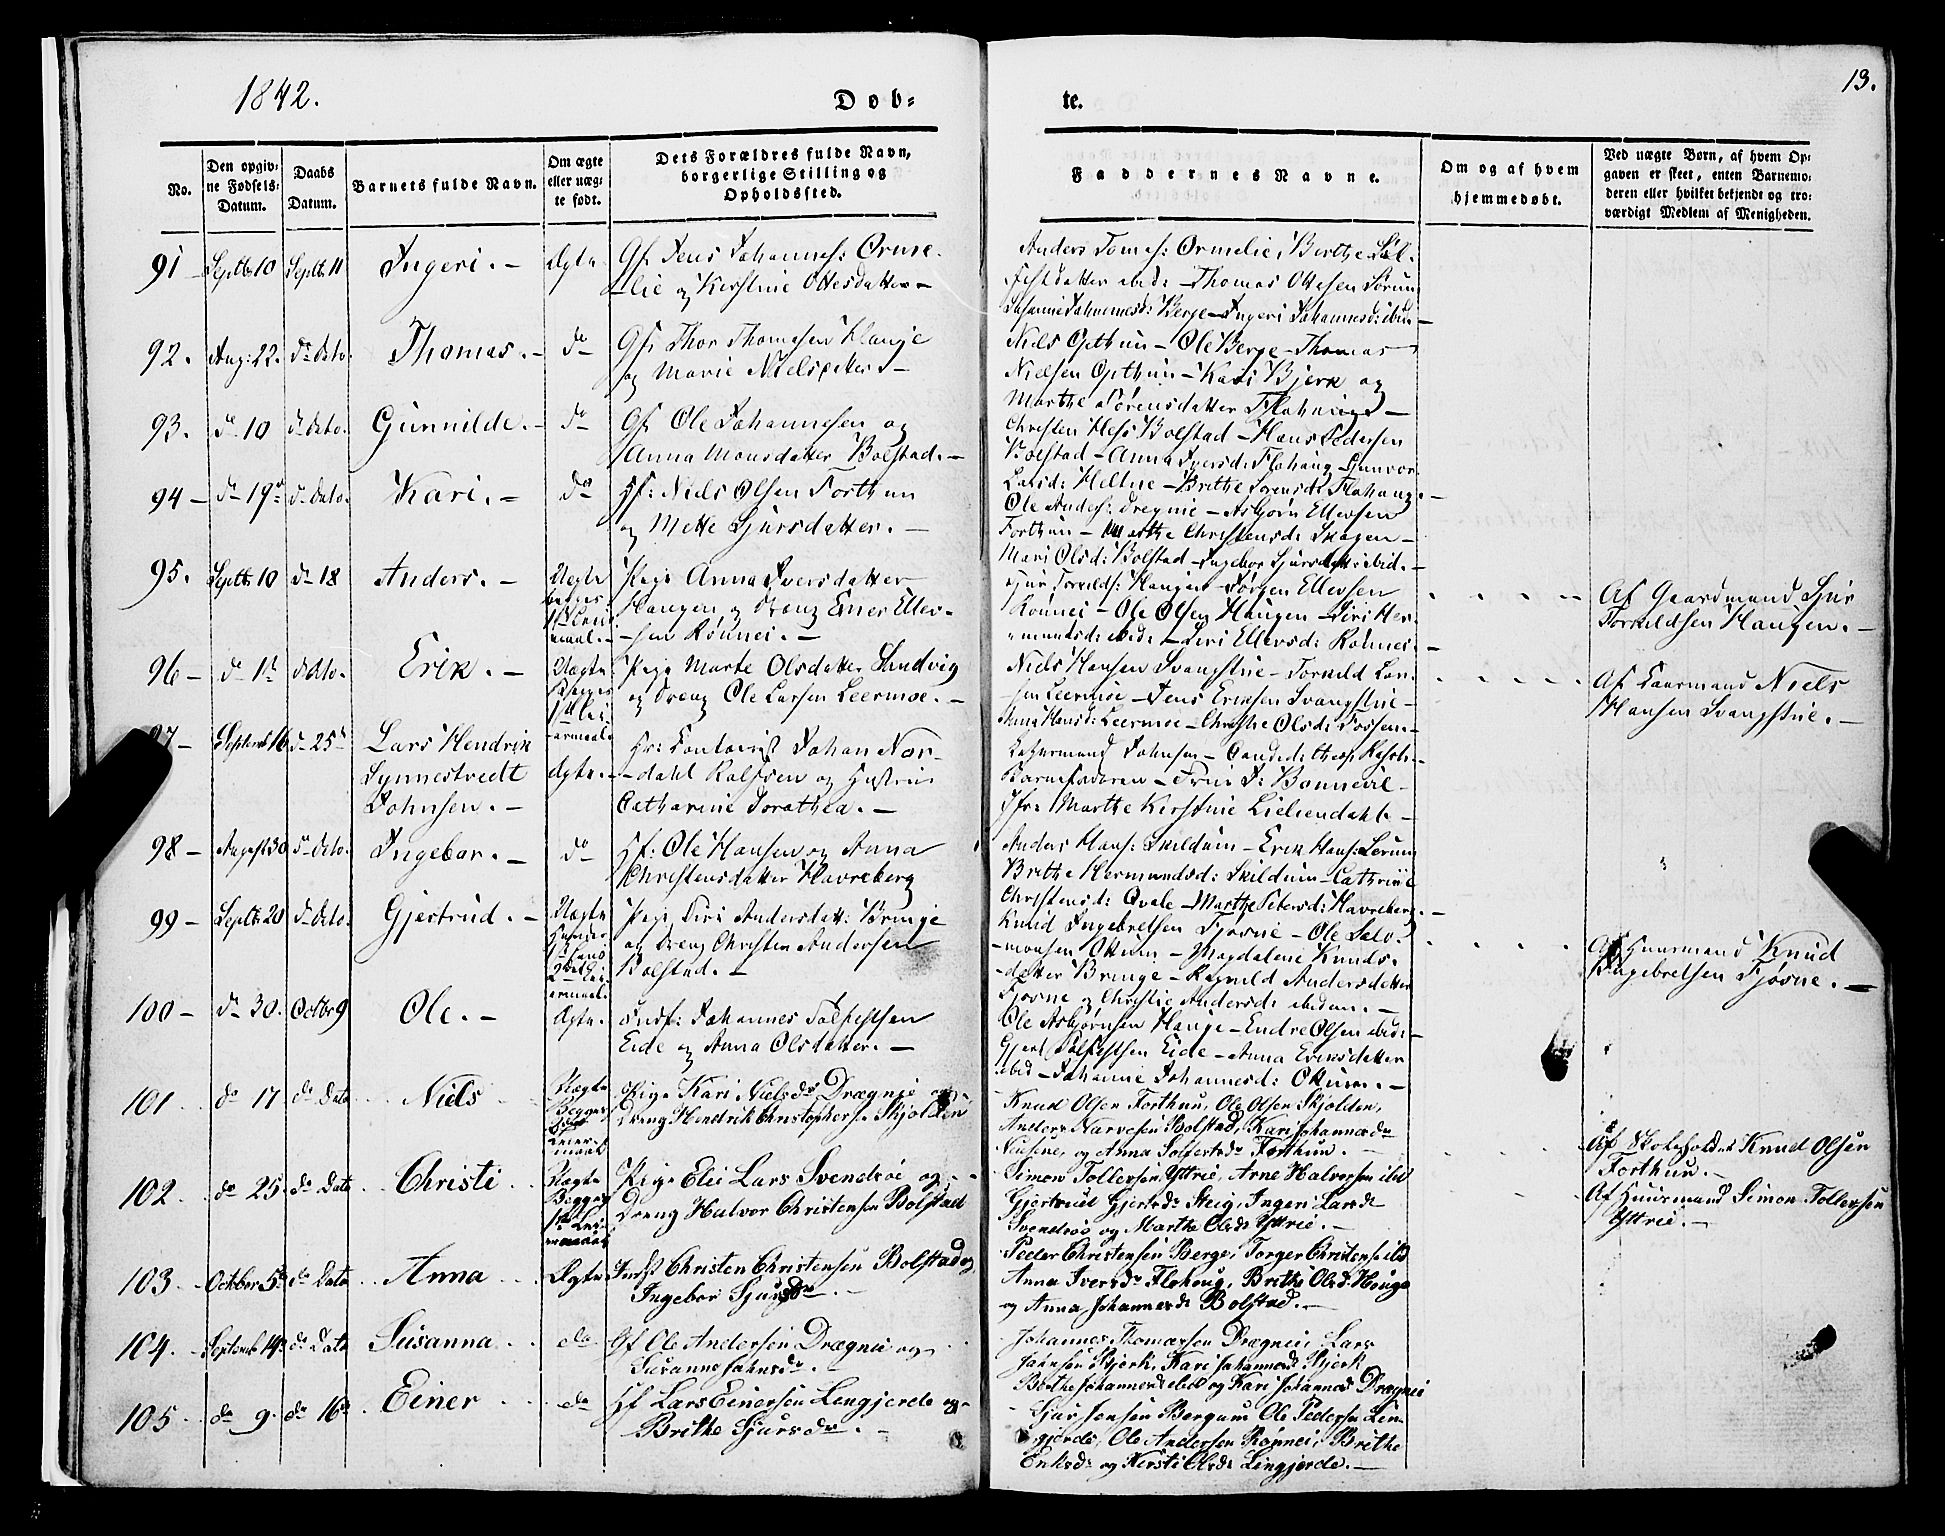 1842.
Dob-
te.
13.
No.
Den opgiv-
ne Fødsels-
Datum.
Daabs
Datum.
Barnets fulde Navn.
Om ægte
eller uæg-
te født.
Dets Forældres fulde Navn,
borgerlige Stilling og
Opholdssted.
Faddernes Navne.
Om og af hvem
hjemmedøbt.
Ved uægte Børn, af hvem Op-
gaven er skeet, enten Barnemo-
deren eller hvilket bekjendt og tro-
værdigt Medlem af Menigheden.
91 - Septbr 10 Septbr 11 Ingeri. - Ægte Gf. Jens Johannes: Orme-
-lie og Kirstine Ottesdatter -
Anders Tomes: Ormelie, Berthe
datter ibid: - Thomas Ottesen Sørum
Johannesd: Berge - Ingeri Johannesd: ibid: -
92. Aug: 22. do dato. Thomas. - do Gf: Thor Thomesen Hauge
og Marie Nielsdatter -
Niels Opthun - Ole Berge - Thomas
Nielsen Opthun - Kari Bjerk og
Marthe Sørensdatter Flohaug -
93. do 10 do dato. Gunnilde. - do Gf. Ole Johannesen og
Anna Monsdatter Bolstad. -
Christen Hess Bolstad - Hans Pedersen
Bolstad - Anna Iversd: Flohaug - Gunvor
Larsd: Heltne - Brithe Sørensd: Flohaug. -
94 - do 19de do dato. Kari. - do Hf: Niels Olsen Forthun
og Mette Sjursdatter. -
Ole Andes: Dregnie - Asbjørn Ellevsen
Forthun - Marthe Christensd: Skogen -
Mari Olsd: Bolstad - Ingebor Sjursdatter ibid. -
95. Septbr 10 do 18 Anders. - Uægte
Pige Anna Iversdatter
Haugen og Dreng Einer Ellev-
-sen Rønnei. -
Sjur Torkilds: Haugen - Jørgen Ellevsen
Rønnei - Ole Olsen Haugen - Siri Her-
-mundsd: ibid: - Siri Ellevsd: Rønnei. -
Af Gaardmand Sjur
Torkildsen Haugen. -
96 - do 1ste do dato. Erik. - Uægte
Pige Marte Olsdatter Sandvig
og Dreng Ole Larsen Leermoe. -
Niels Hansen Svangstue - Torkild Lar-
-sen Leermoe - Jens Eriksen Svangstue -
Anna Hansd: Leermoe - Christie Olsd: Fossen. -
Af Huusmand Niels
Hansen Svangstue. -
97 - Septemb 16 do 25de Lars Hendrik
Synnestvedt
Johnsen. -
Ægte. - Hr: Contoirist Johan Nor-
-dahl Rolfsen og Hustrue
Catharine Dorothea. -
Johnsen - Candidt theol
Barnefaderen - Frue D: Bonnevie -
Jfr: Marthe Kirstine Lieliendahl -
98 - August 30 do dato. Ingebor. - do Hf: Ole Hansen og Anna
Christensdatter Havreberg
Anders Hans: Skildum - Erik Hans: Lerum
Brithe Hermundsd: Skildum - Cathrine
Christensd: Qvale - Marthe Petersd: Havreberg. -
99 - Septbr 20 do dato. Gjertrud. - Uægte
Pige Siri Andersdatt: Bringe
og Dreng Christen Andersen
Bolstad. -
Knud Ingebretsen Fjøsne - Ole Salo-
-monsen Ottum - Magdalene Knuds-
-datter Bringe - Ragnild Andersdatter
Fjøsne og Christie Andersd: ibidem. -
Af Huusmand Knud
Ingebretsen Fjøsne. -
100 - do 30. Octbr 9 Ole. - Ægte. Indf: Johannes Tolfestsen
Eide og Anna Olsdatter. -
Ole Asbjørnsen Hauge - Endre Olsen ibid: -
Gjert Tolfestsen Eide - Anna Eriksdatter
ibid - Johanne Johannesd: Ottum. -
101 do 17 do Dato Niels Uægte
Pige Kari Nielsdr Drægnie og
Dreng Hendrik Christophersen Skjolden
Knud Olsen Forthun, Ole Olsen Skjolden,
Anders Narvesen Bolstad, Kari Johannesdr
og Anna Tolfestsdr Forthun. -
Af Skoleholder Knud Olsen
Forthun. -
102 do 25 do Dato Christi Uægte
Pige Eli Lars Svendsøe og
Dreng Halvor Christensen Bolstad
Simon Tollevsen Yttrie, Arne Halvorsen ibid
Gjertrud Gjertsdr Steig, Ingeri Larsdr
Svendsøe og Marthe Olsdr Yttrie. -
Af Huusmand Simon Tollevsen
Yttrie. -
103 October 5te do Dato Anna Ægte Indst Christen Christensen Bolstad og
Ingebor Sjursdr. -
Peder Christensen Berge, Torger Christensen ibid
Anna Iversdr Flohoug, Brithe Olsdr Houge
og Anna Johannesdr Bolstad. -
104. Septemb 14de do Dato Susanna do Gf Ole Andersen Drægnie og
Susanne Johnsdr.
Johannes Thomassen Drægnie, Lars
Johnsen Bjerk, Kari Johannesdr Bjerk
Berthe Johannesdr ibid og Kari Johannesdr Drægnie
105 do 9. do 16de Einer do Hf Lars Einersen Lengjerde og
Brithe Sjursdr. -
Sjur Jensen Bergum Ole Pedersen Len-
gjerde, Ole Andersen Rønnei, Brithe
Eriksdr og Kersti Olsdr Lengjerde. -